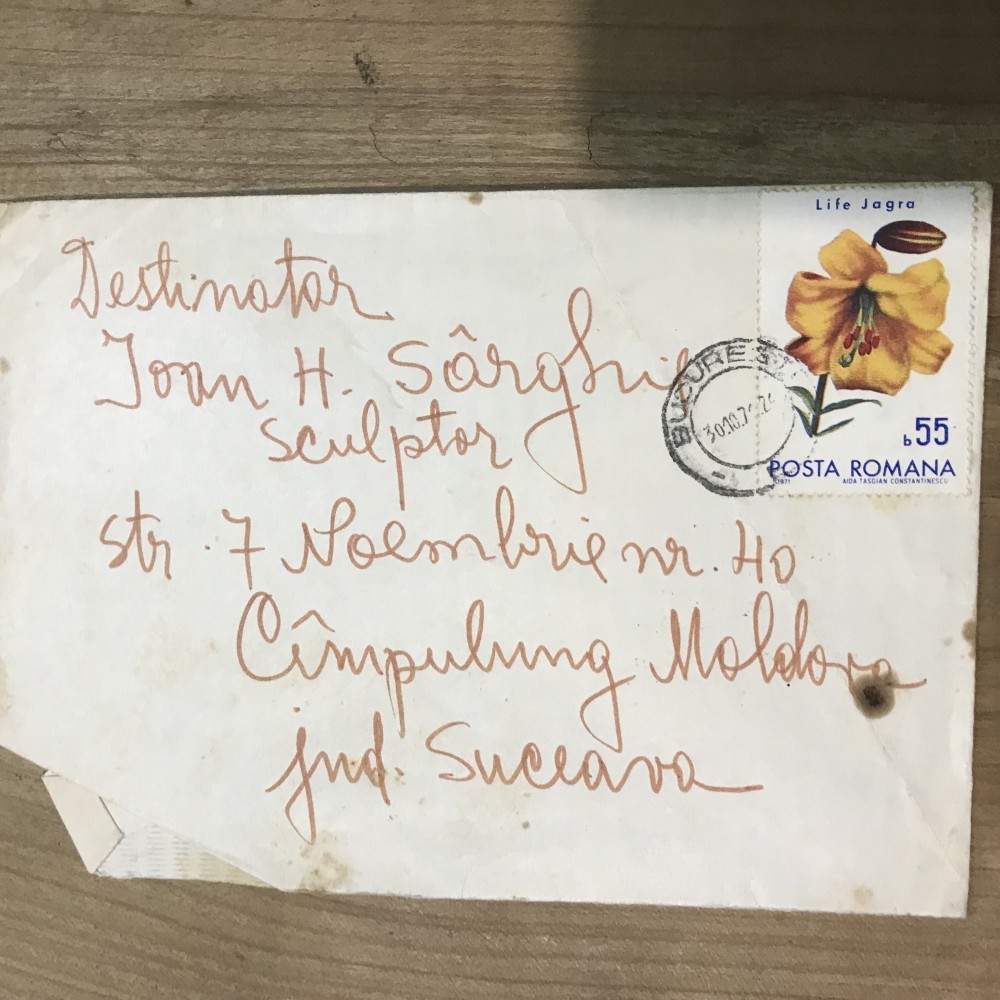 Life Jagra
Destinatar
Ioan H. Sârghie
sculptor
BUCUREȘTI
b55
POSTA ROMANA
1971 AIDA TASGIAN CONSTANTINESCU
str. 7 Noembrie nr. 40
Cîmpulung Moldova
jud. Suceava